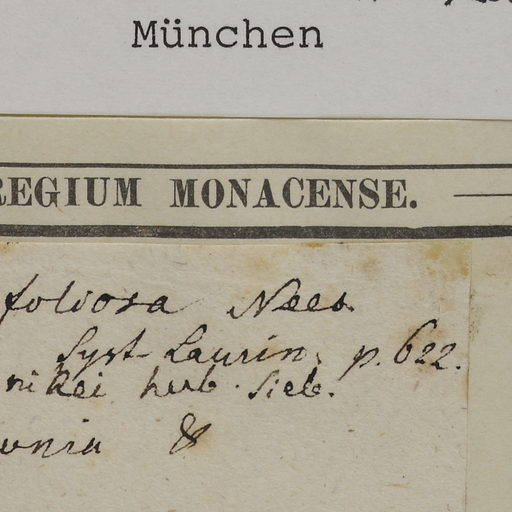 München
REGIUM MONACENSE.
foliosa Nees
Syst. Laurin. p. 622.
herb. Sieb.